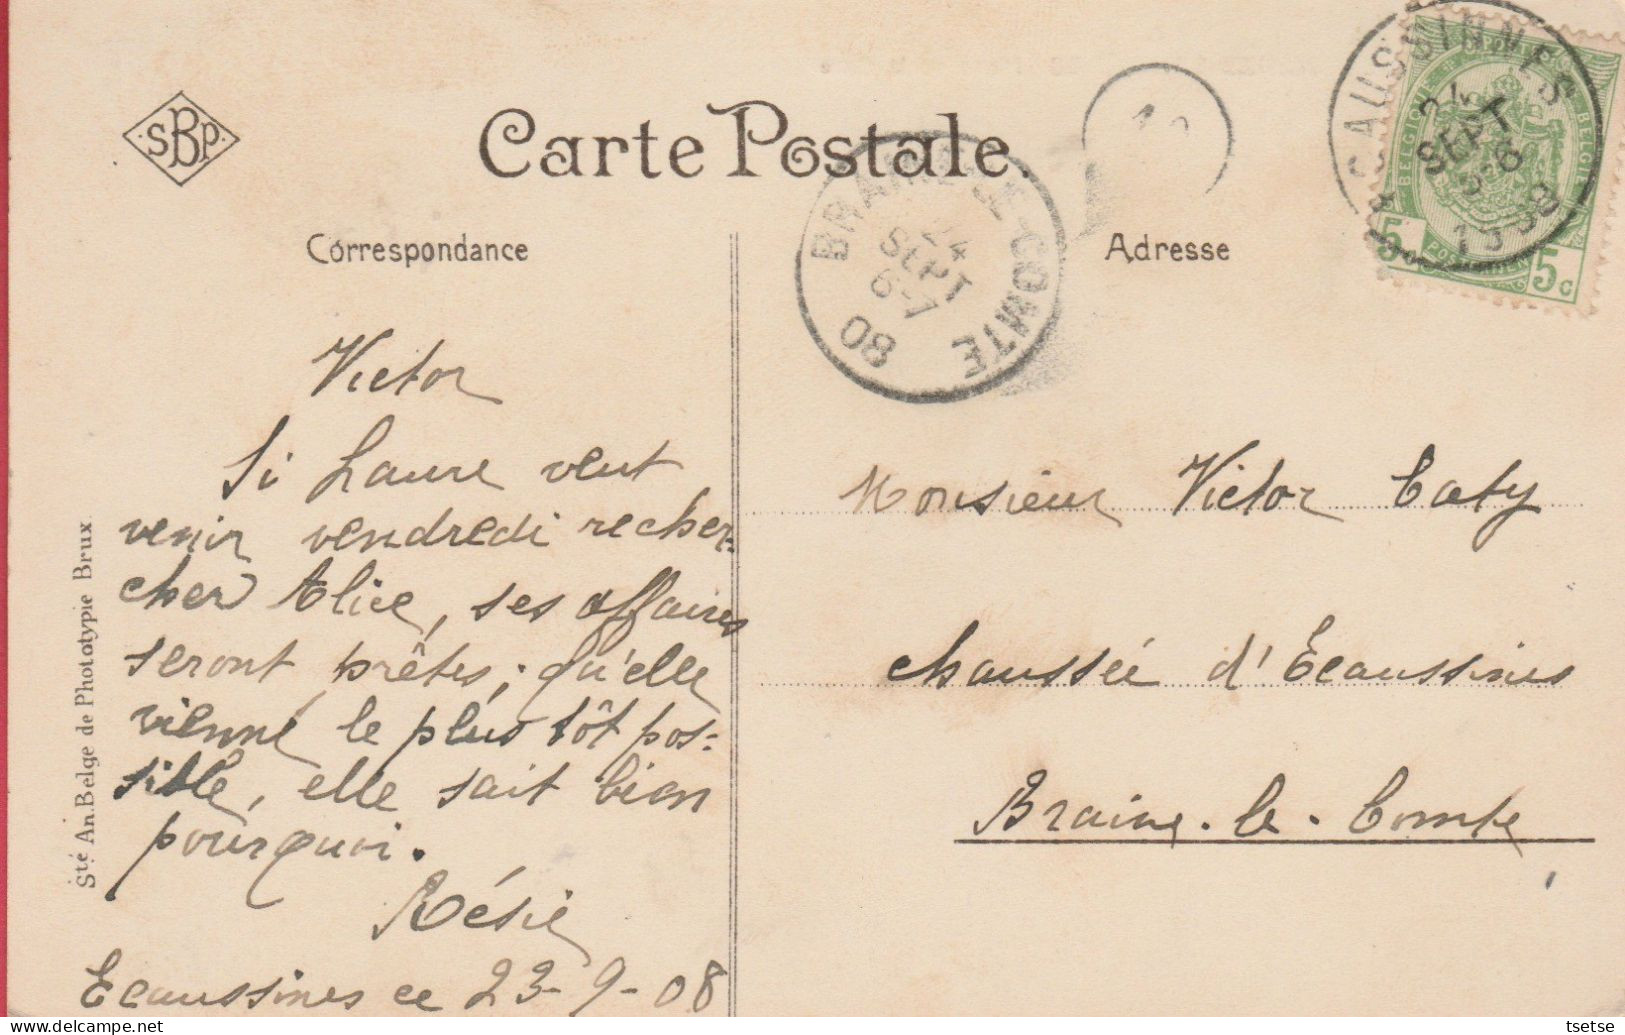 SBP
Carte Postale.
Correspondance
Adresse
ECAUSSINNES
24
SEPT
5-6
1908
BELGIQUE
BELGIË
5c
5c
BRAINE-LE-COMTE
24
SEPT
6-7
08
Victor
Si Laure veut
venir vendredi recher-
cher Alice, ses affaires
seront prêtes; qu'elle
vienne le plus tôt pos-
sible, elle sait bien
pourquoi.
Résie
Ecaussines ce 23-9-08
Monsieur Victor Caty
chaussée d'Ecaussines
Braine-le-Comte
Sté An. Belge de Phototypie Brux
delcampe.net
tsetse